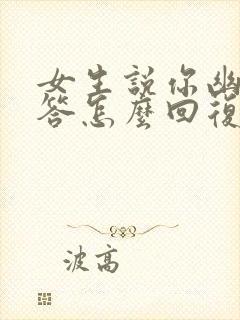 女生說你幽
答怎麼回復
波高